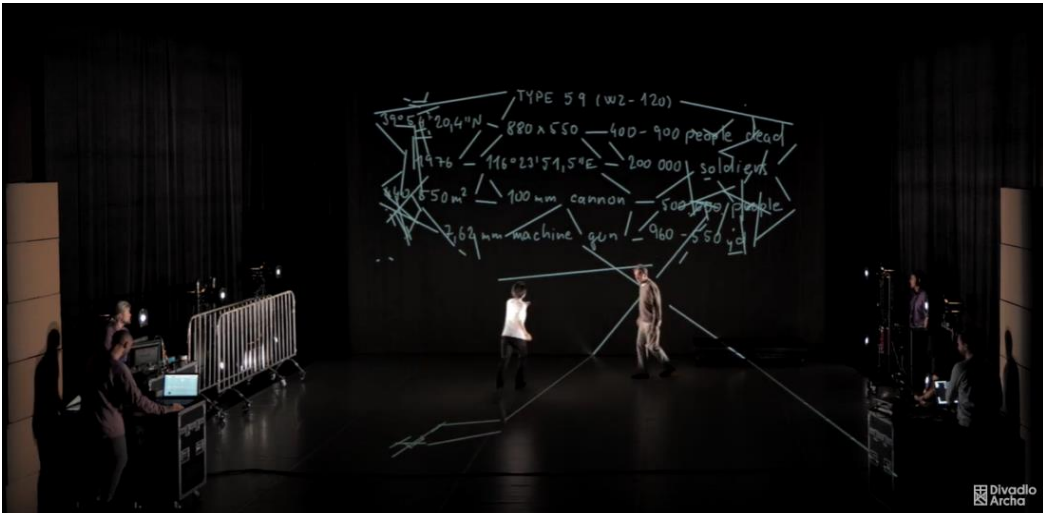 TYPE 59 (WZ-120)
20,4"N – 880 x 550 — 400 - 900 people dead
1976 – 116°23'51,5"E – 200 000 soldiers
550m² — 100 mm cannon — people
7,62 mm machine gun – 960 - 550 yd
Divadlo
Archa